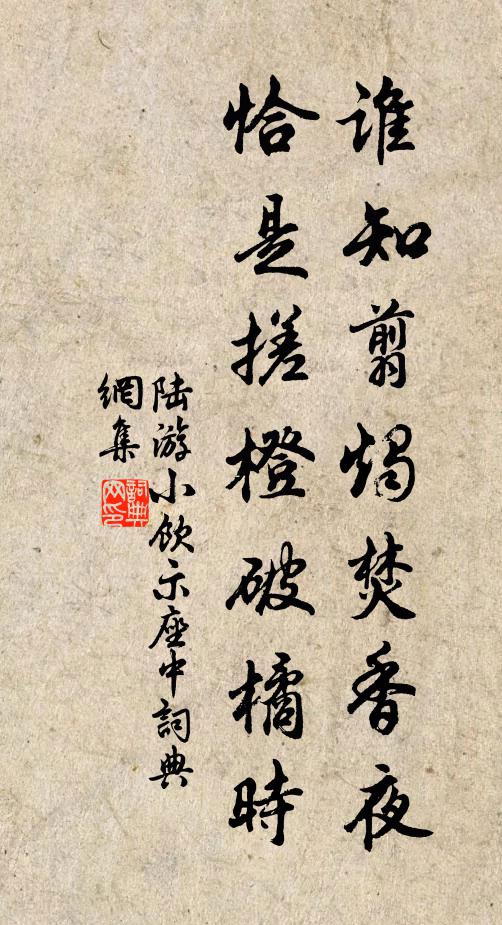 谁知剪烛焚香夜
恰是搓橙破橘時
陆游小飲示座中詞典
網集
詞典网印